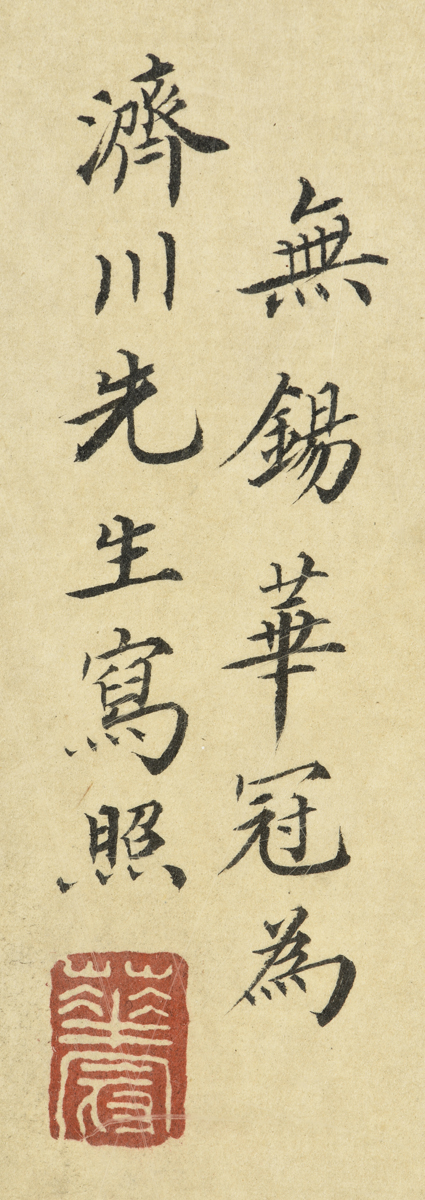 無錫華冠為
濟川先生寫照
華冠